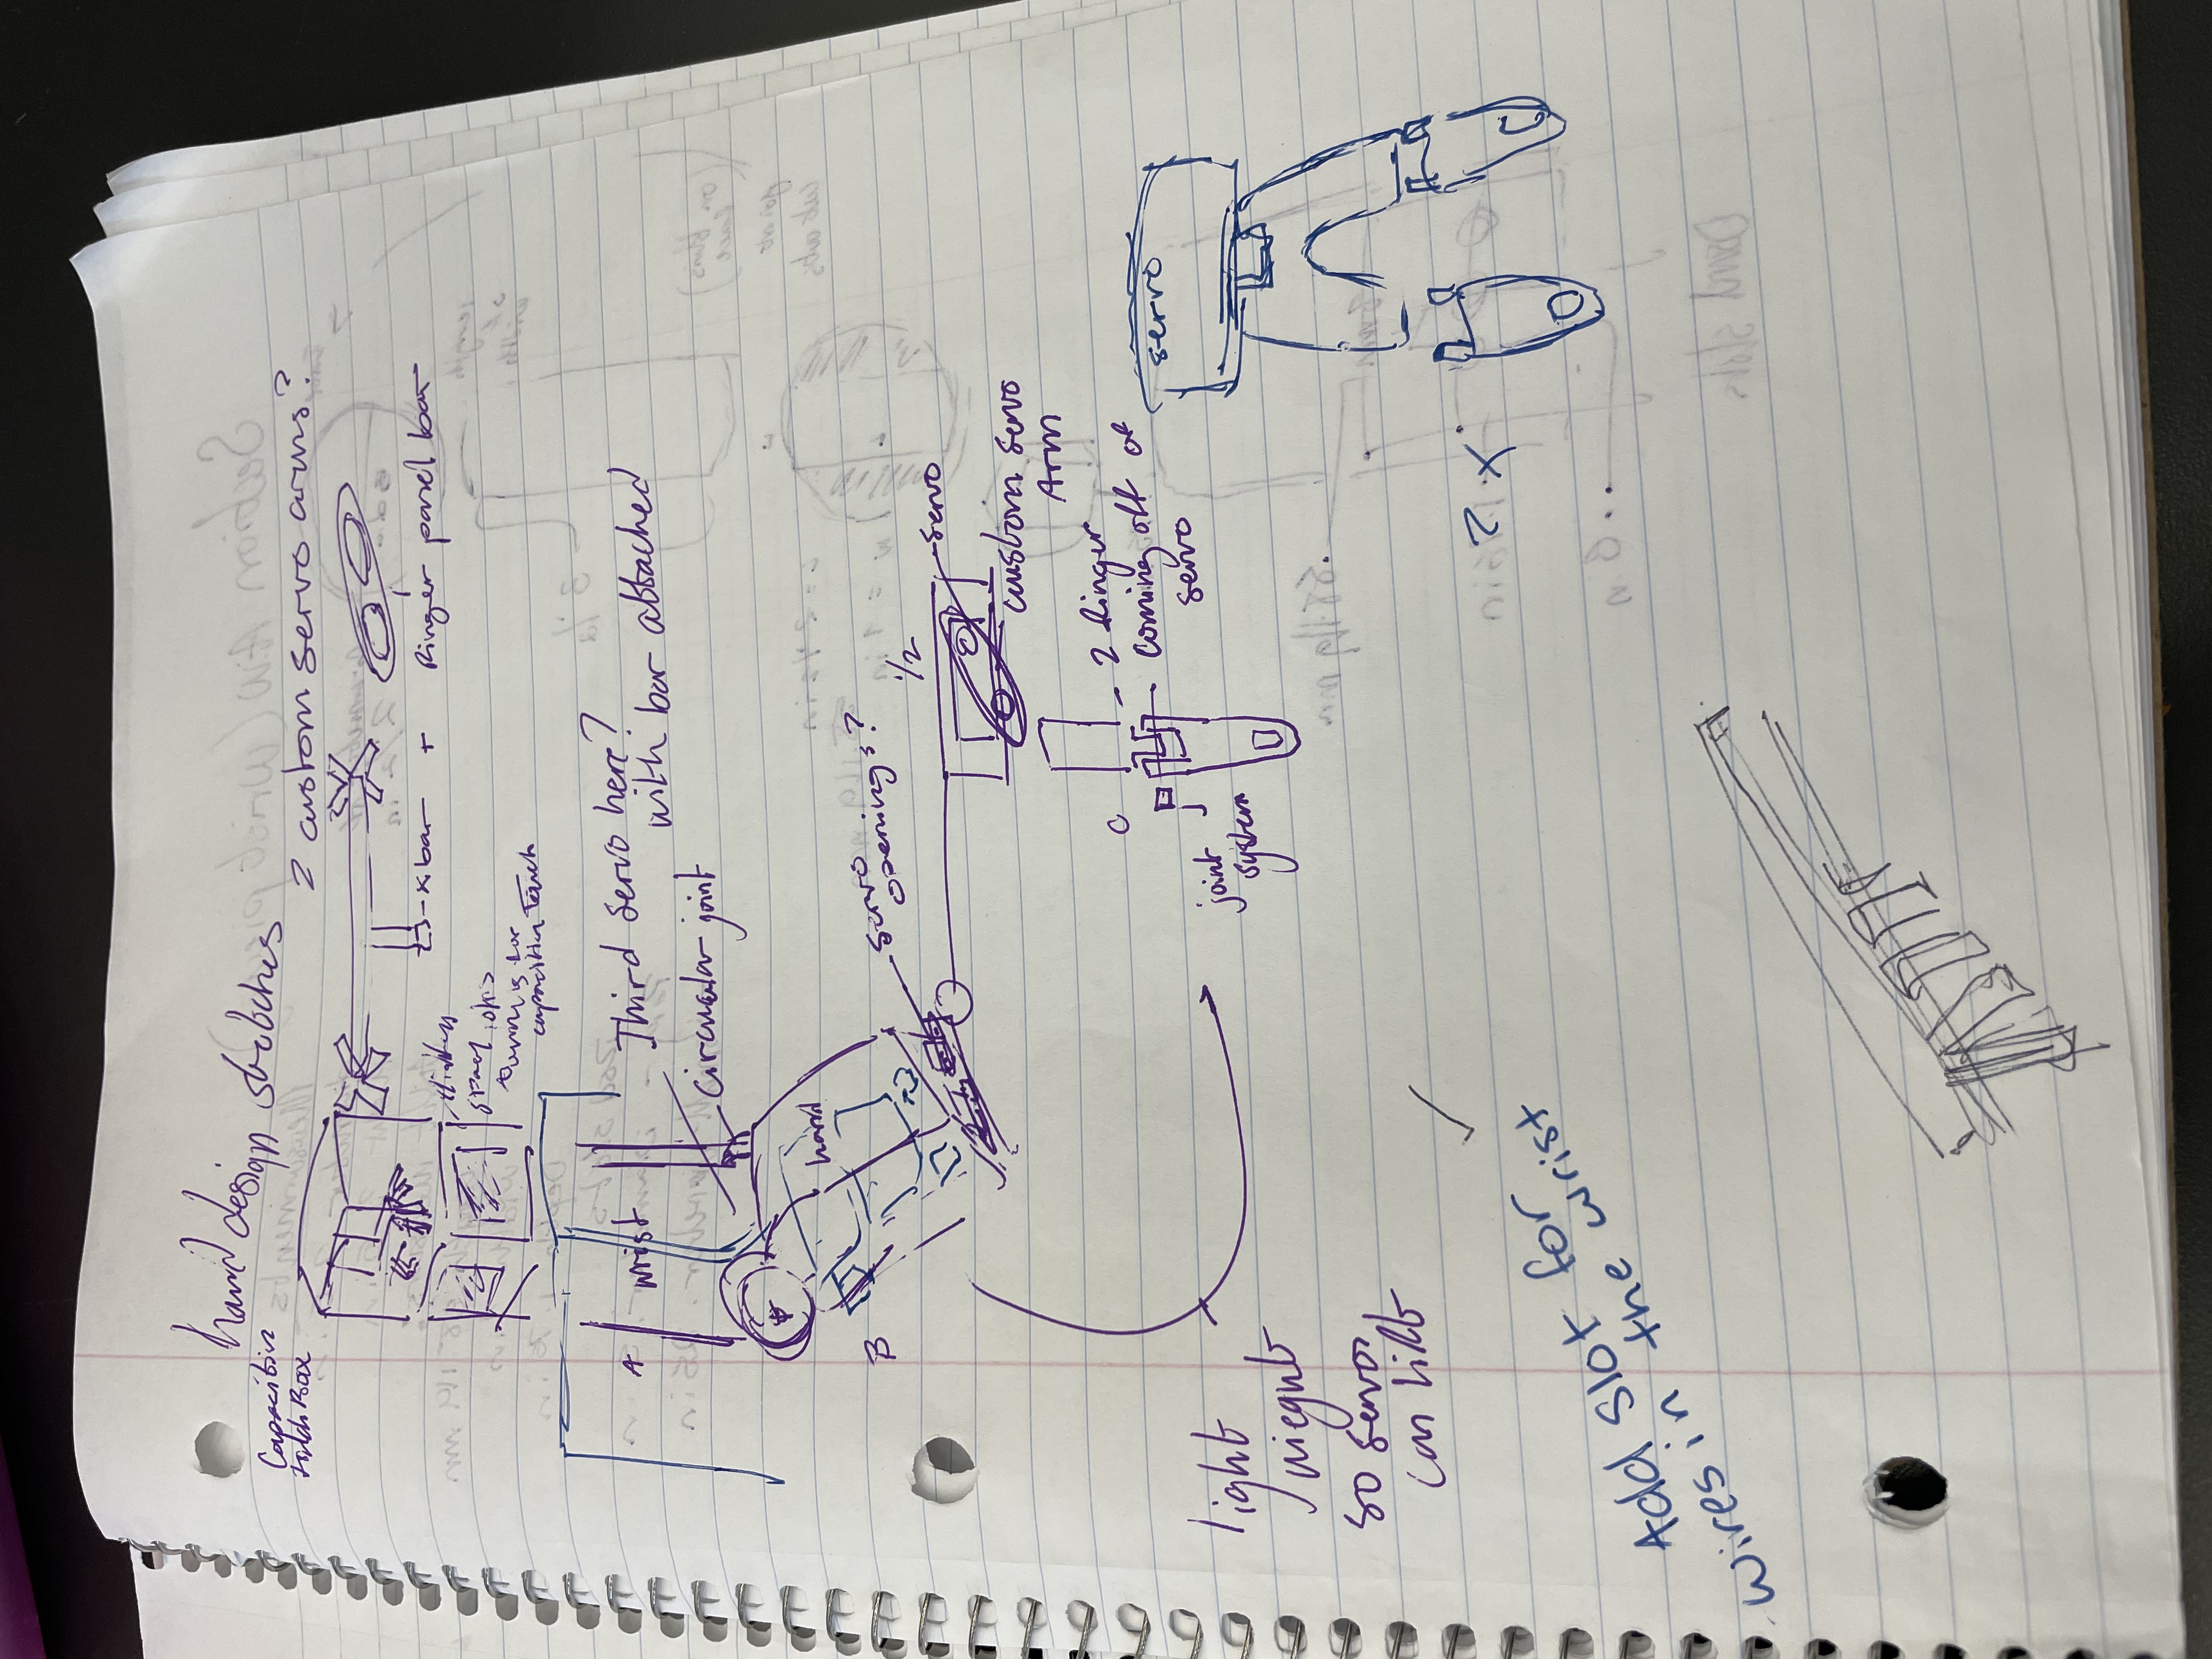 hand design sketches
Capacitive
touch Box
2 custom servo arms?
x bar + finger panel bar
capacitive Touch
A
wrist
Third servo here?
with bar attached
circular joint
hand
B
servo
openings?
1/2
servo
custom servo
Arm
C
2 finger
coming off of
servo
joint
system
servo
light
wieght
so servos
can lift
2 x
Add slot for
wires in the wrist